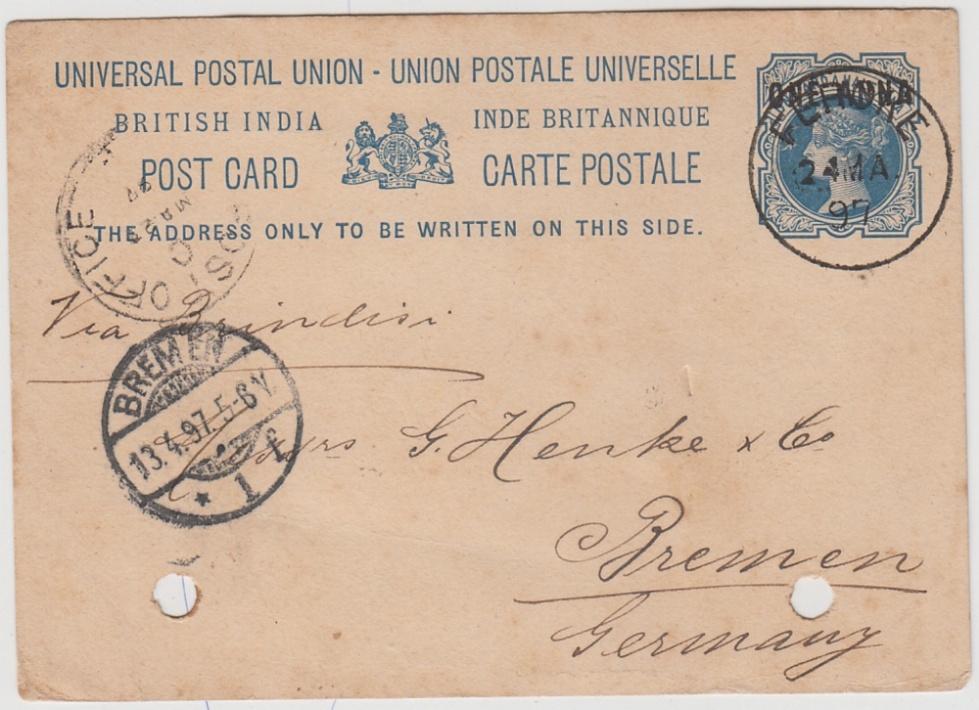 UNIVERSAL POSTAL UNION - UNION POSTALE UNIVERSELLE
BRITISH INDIA INDE BRITANNIQUE
POST CARD CARTE POSTALE
THE ADDRESS ONLY TO BE WRITTEN ON THIS SIDE.
ONE ANNA
24 MA
97
OFFICE
Via Brindisi
BREMEN
13.4.97.5-6 V.
* 1 f
G. Henke & Co
Bremen
Germany